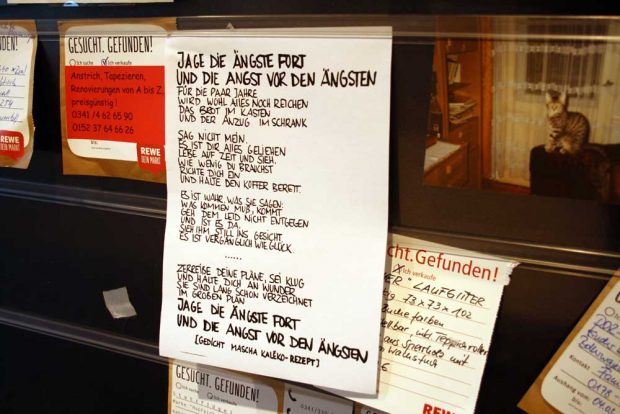 GESUCHT. GEFUNDEN!
Ich suche Ich verkaufe
Anstrich, Tapezieren,
Renovierungen von A bis Z,
preisgünstig!
0341 / 4 62 65 90
0152 37 64 66 26
REWE
DEIN MARKT
REWE
DEIN MARKT
JAGE DIE ÄNGSTE FORT
UND DIE ANGST VOR DEN ÄNGSTEN
FÜR DIE PAAR JAHRE
WIRD WOHL ALLES NOCH REICHEN
DAS BROT IM KASTEN
UND DER ANZUG IM SCHRANK
SAG NICHT MEIN.
ES IST DIR ALLES GELIEHEN
LEBE AUF ZEIT UND SIEH,
WIE WENIG DU BRAUCHST
RICHTE DICH EIN
UND HALTE DEN KOFFER BEREIT.
ES IST WAHR, WAS SIE SAGEN:
WAS KOMMEN MUß, KOMMT.
GEH DEM LEID NICHT ENTGEGEN
UND IST ES DA,
SIEH IHM STILL INS GESICHT.
ES IST VERGÄNGLICH WIE GLÜCK.
......
ZERREIßE DEINE PLÄNE, SEI KLUG
UND HALTE DICH AN WUNDER
SIE SIND LANG SCHON VERZEICHNET
IM GROßEN PLAN
JAGE DIE ÄNGSTE FORT
UND DIE ANGST VOR DEN ÄNGSTEN
[GEDICHT MASCHA KALÉKO-REZEPT]
sucht. Gefunden!
Ich verkaufe
LAUFGITTER
73 x 73 x 102
REWE
GESUCHT. GEFUNDEN!
Ich suche Ich verkaufe
Kontakt
Aushang vom
bis: